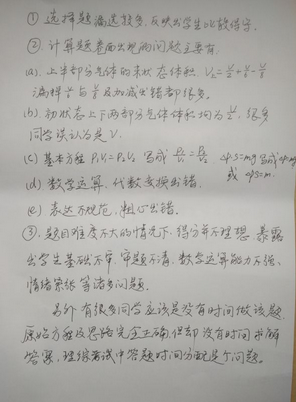 ① 选择题漏选较多,反映出学生比较保守。
② 计算题卷面出现的问题主要有
(a). 上半部分气体的末状态体积 V₂=V/2+V/4-V/8
漏掉V/4与V/8及加减出错都很多。
(b). 初状态上下两部分气体体积均为V/2,很多
同学误认为是V.
(c) 基本方程 P₁V₁=P₂V₂ 写成
(d) 数学运算、代数变换出错.
(e) 表达不规范,粗心出错.
③. 题目难度不大的情况下,得分并不理想,暴露
出学生基础不牢、审题不清、数学运算能力不强、
情绪紧张等诸多问题.
另外有很多同学应该是没有时间做该题
原始方程及思路完全正确,但却没有时间求解
答案,理综考试中答题时间分配是个问题.